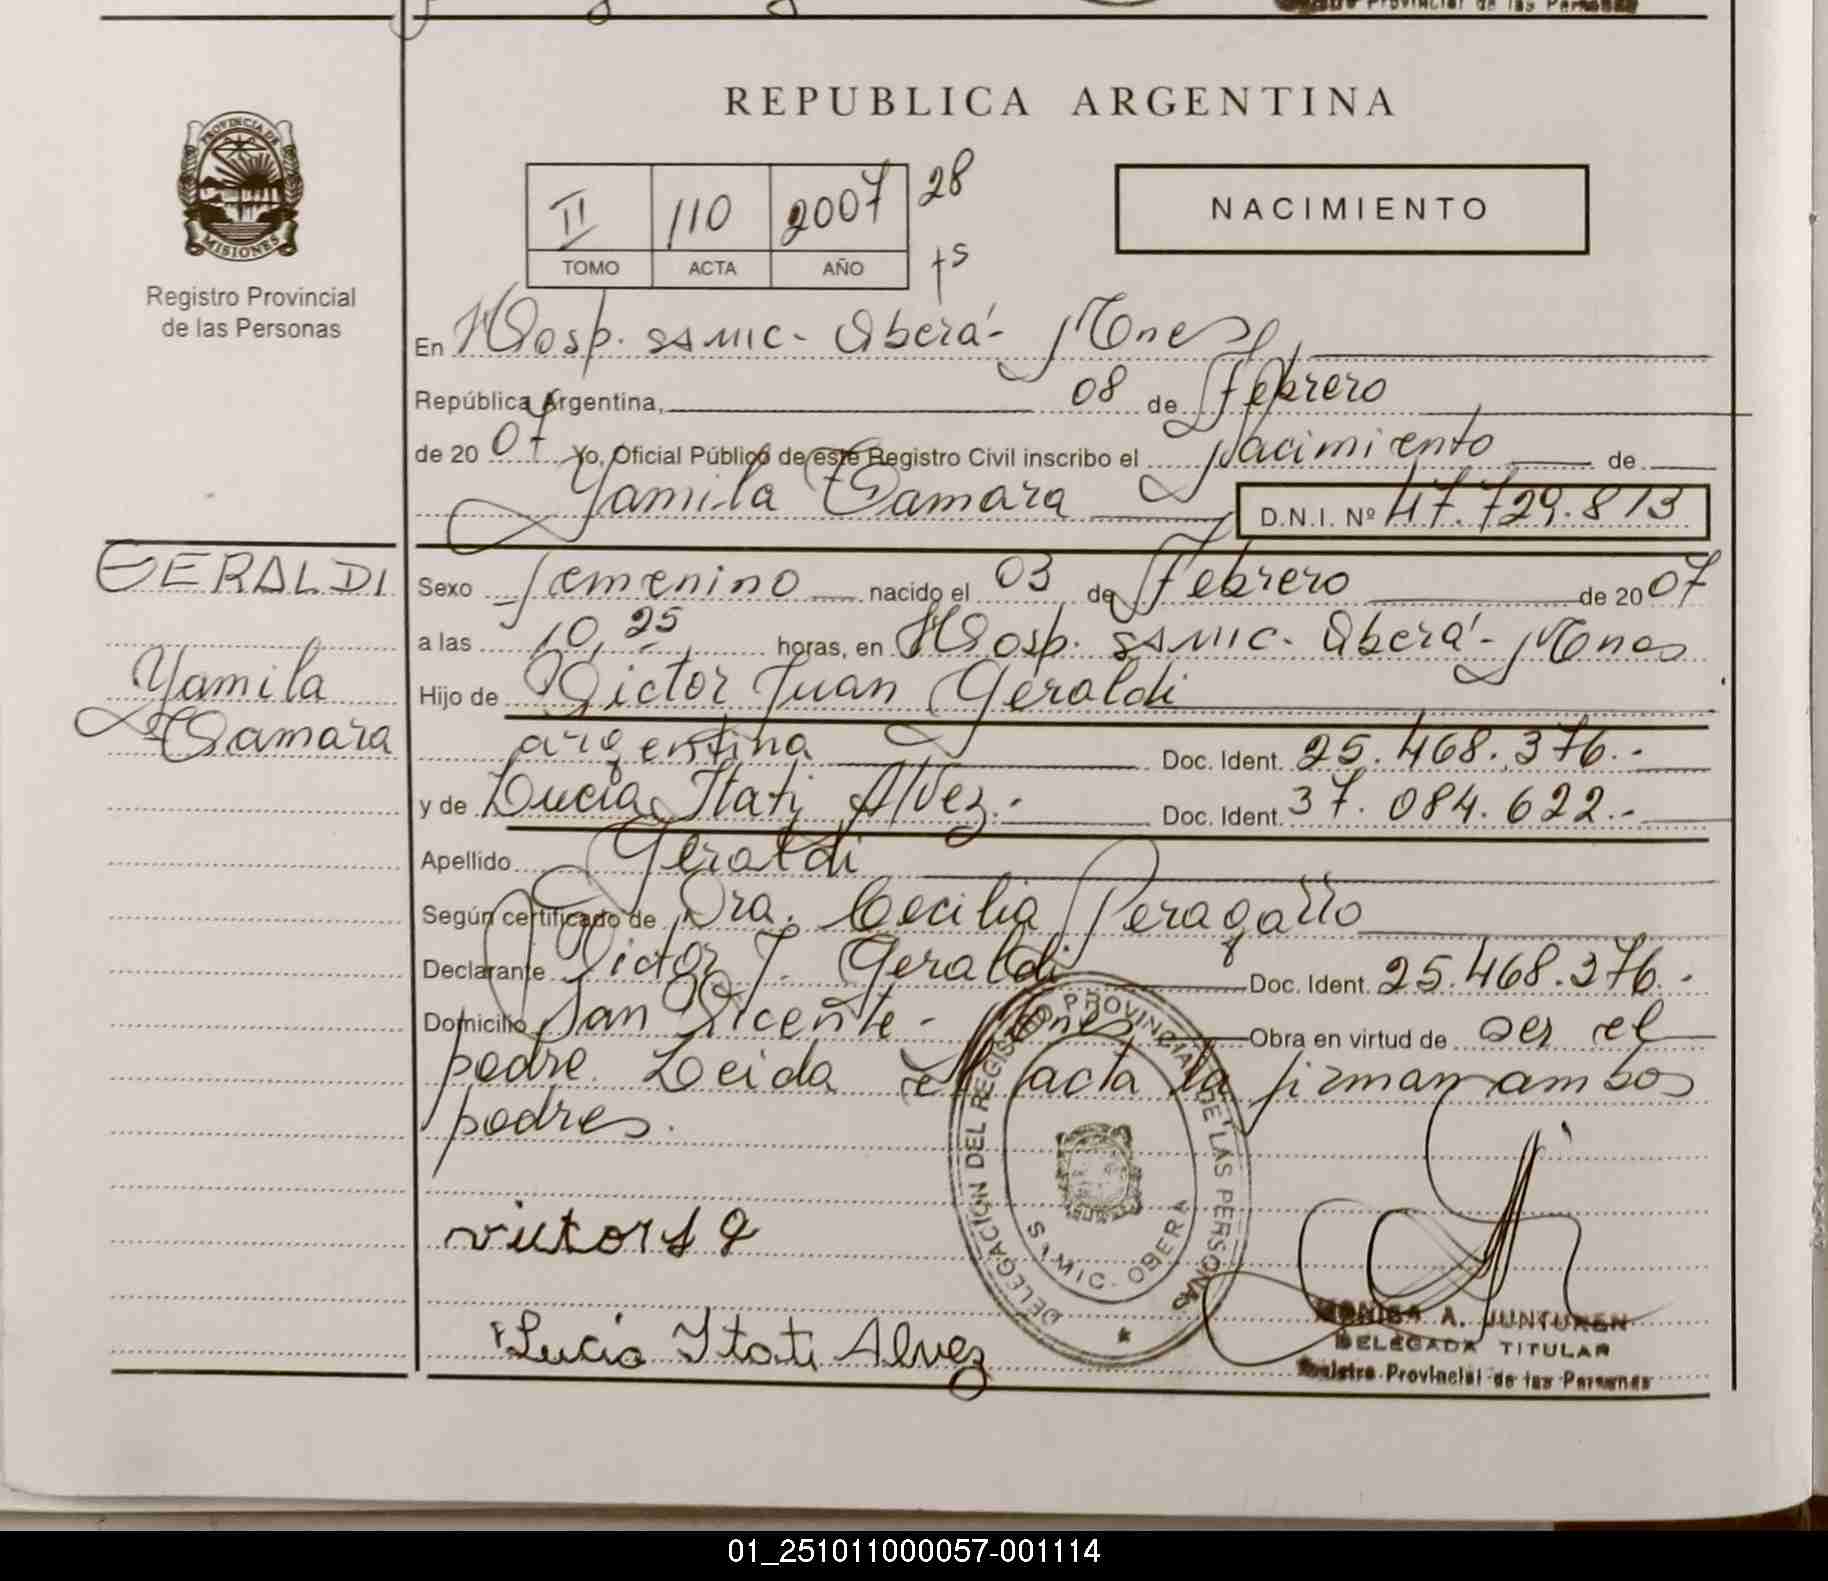 Registro Provincial de las Personas
REPUBLICA ARGENTINA
PROVINCIA DE MISIONES
Registro Provincial
de las Personas
II 110 2007 28
TOMO ACTA AÑO
NACIMIENTO
En Hosp. SAMIC - Oberá - Mnes
República Argentina, 08 de Febrero
de 2007 Yo, Oficial Público de este Registro Civil inscribo el Nacimiento de
Yamila Tamara D.N.I. Nº 47.729.813
GERALDI
Yamila
Tamara
Sexo femenino nacido el 03 de Febrero de 2007
a las 10,25 horas, en Hosp. SAMIC - Oberá - Mnes
Hijo de Victor Juan Geraldi
argentina Doc. Ident. 25.468.376.-
y de Lucia Itati Alvez.- Doc. Ident. 37.084.622.-
Apellido Geraldi
Según certificado de Dra. Cecilia Peragallo
Declarante Victor J. Geraldi Doc. Ident. 25.468.376.-
Domicilio San Vicente - Mnes Obra en virtud de ser el
padre. Leida el acta la firman ambos
padres.
DELEGACION DEL REGISTRO PROVINCIAL DE LAS PERSONAS
SAMIC - OBERA
victor J G
Lucia Itati Alvez
MONICA A. JUNTUNEN
DELEGADA TITULAR
Registro Provincial de las Personas
01_251011000057-001114